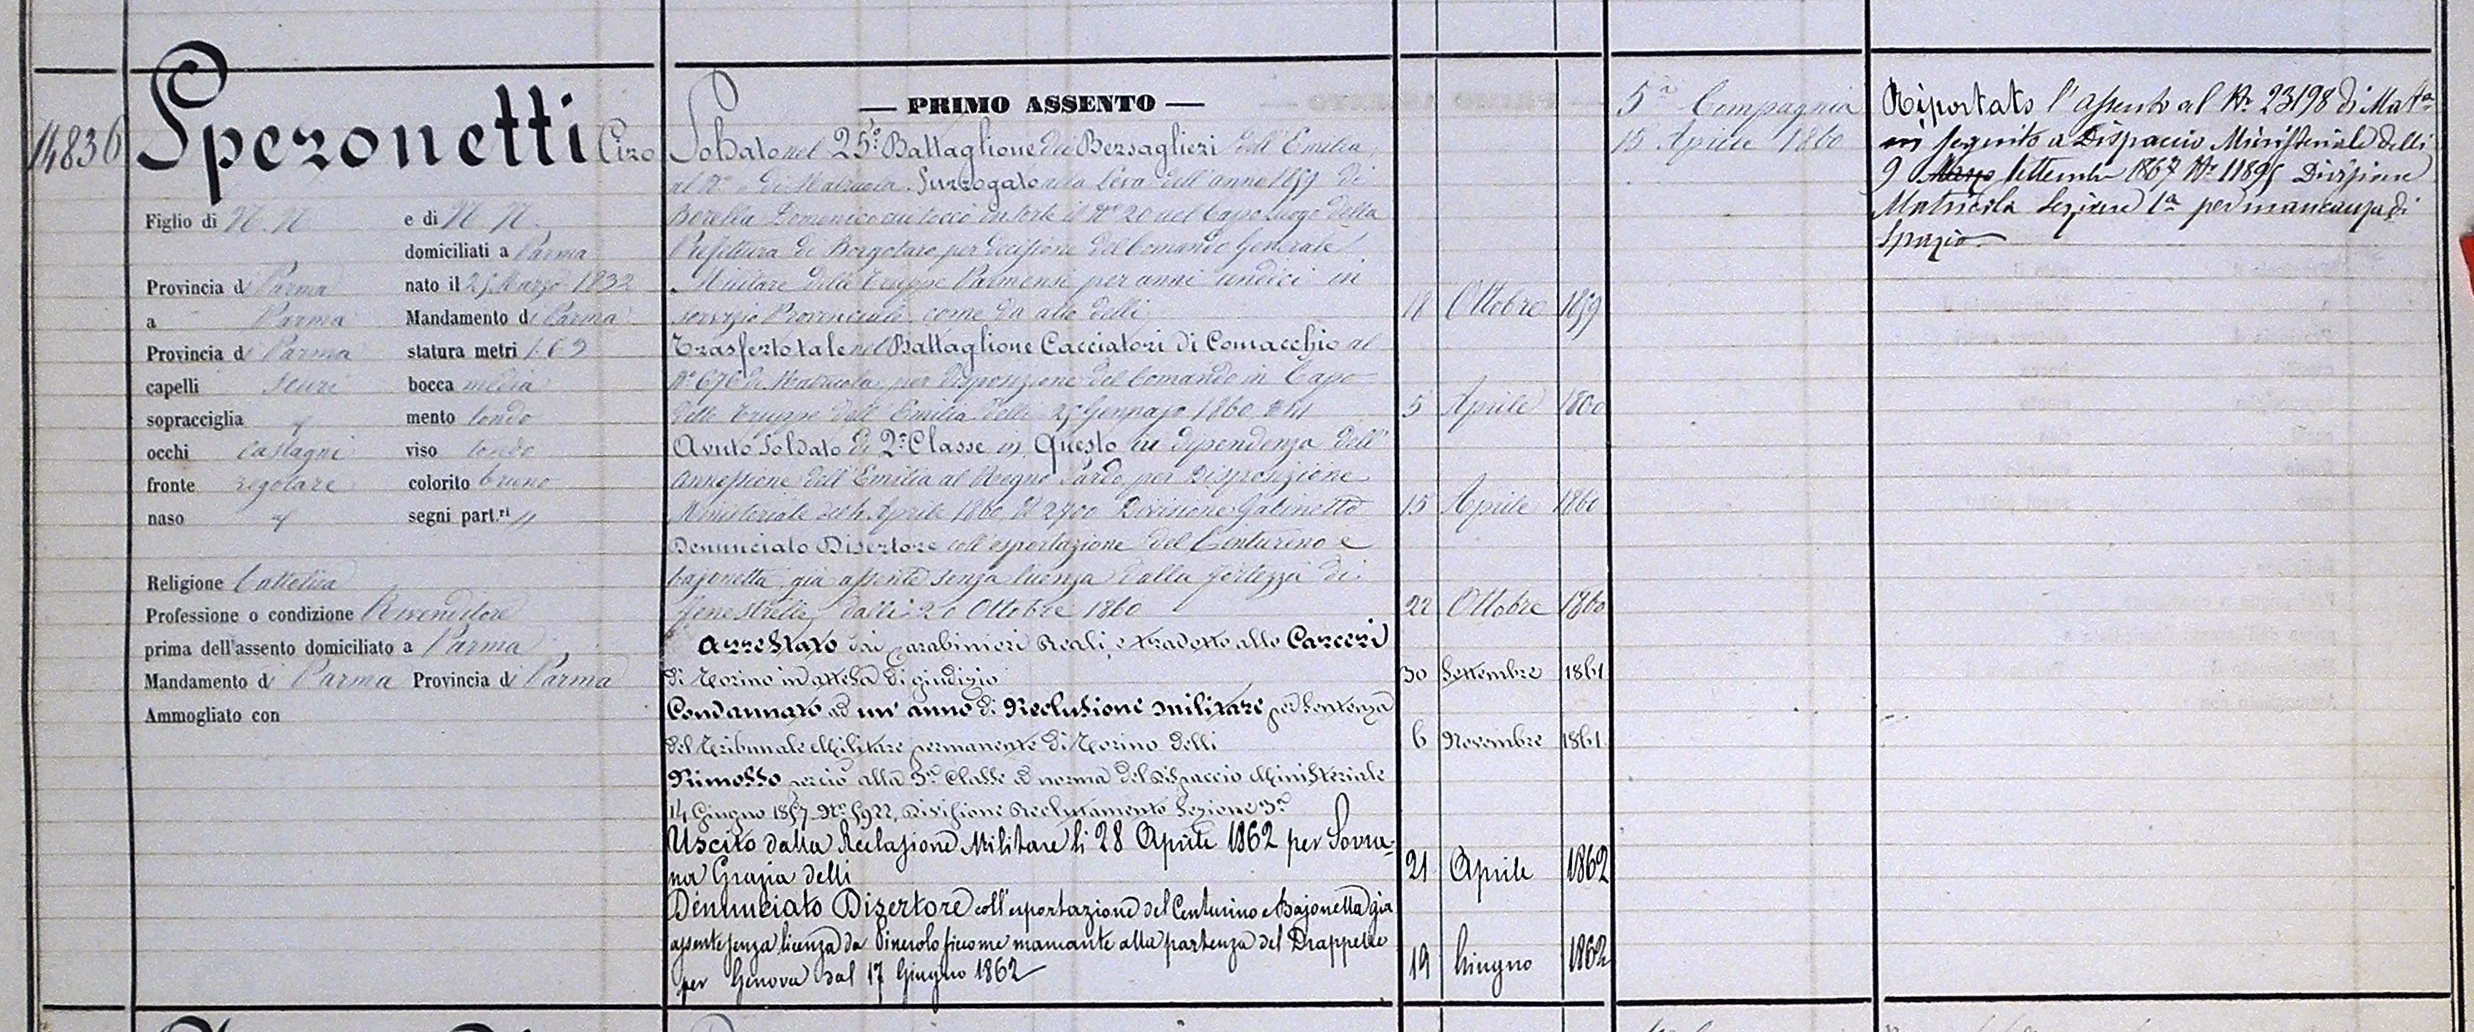 14836
Speronetti Ciro
Figlio di N. N. e di N. N.
domiciliati a Parma
Provincia di Parma nato il 25 Marzo 1832
a Parma Mandamento di Parma
Provincia di Parma statura metri 1.69
capelli scuri bocca media
sopracciglia mento tondo
occhi castagni viso tondo
fronte regolare colorito bruno
naso segni part.ri
Religione Cattolica
Professione o condizione Rivenditore
prima dell'assento domiciliato a Parma
Mandamento di Parma Provincia di Parma
Ammogliato con
— PRIMO ASSENTO —
Soldato nel 25º Battaglione dei Bersaglieri dell'Emilia
al Nº di Matricola. Surrogato alla Leva dell'anno 1859 di
Borella Domenico cui toccò in sorte il Nº 20 nel Capo luogo della
Prefettura di Borgotaro per decisione del Comando Generale
Militare delle Truppe Parmensi per anni undici in
servizio Provinciale come da atto delli 18 Ottobre 1859
Trasferto tale nel Battaglione Cacciatori di Comacchio al
Nº 676 di Matricola per disposizione del Comando in Capo
delle Truppe dell'Emilia delli 25 Gennajo 1860 5 Aprile 1860
Avuto Soldato di 2ª Classe in Questo in dipendenza dell'
annessione dell'Emilia al Regno Sardo, per Disposizione
Ministeriale del 4 Aprile 1860 Nº 2700 Divisione Gabinetto 15 Aprile 1860
Denunciato Disertore coll'esportazione del Centurino e
bajonetta, già assente senza licenza dalla fortezza di
Fenestrelle dalli 20 Ottobre 1860 22 Ottobre 1860
Arrestato dai Carabinieri Reali, e tradotto alle Carceri
di Torino in attesa di giudizio 30 Settembre 1861
Condannato ad un' anno di Reclusione militare per Sentenza
del Tribunale Militare permanente di Torino delli 6 Novembre 1861
Rimosso perciò alla 3ª Classe a norma del Dispaccio Ministeriale
14 Giugno 1857 Nº 5922, Divisione Reclutamento Sezione 3ª
Uscito dalla Reclusione Militare li 28 Aprile 1862 per Sovra-
na Grazia delli 21 Aprile 1862
Denunciato Disertore coll'esportazione del Centurino e Bajonetta già
assente senza licenza da Pinerolo siccome mancante alla partenza del Drappello
per Genova dal 17 Giugno 1862 19 Giugno 1862
5ª Compagnia
15 Aprile 1860
Riportato l'assento al Nº 23198 di Matla
in seguito a Dispaccio Ministeriale delli
9 Marzo Settembre 1867 Nº 11895 Divisione
Matricola Sezione 1ª per mancanza di
Spazio